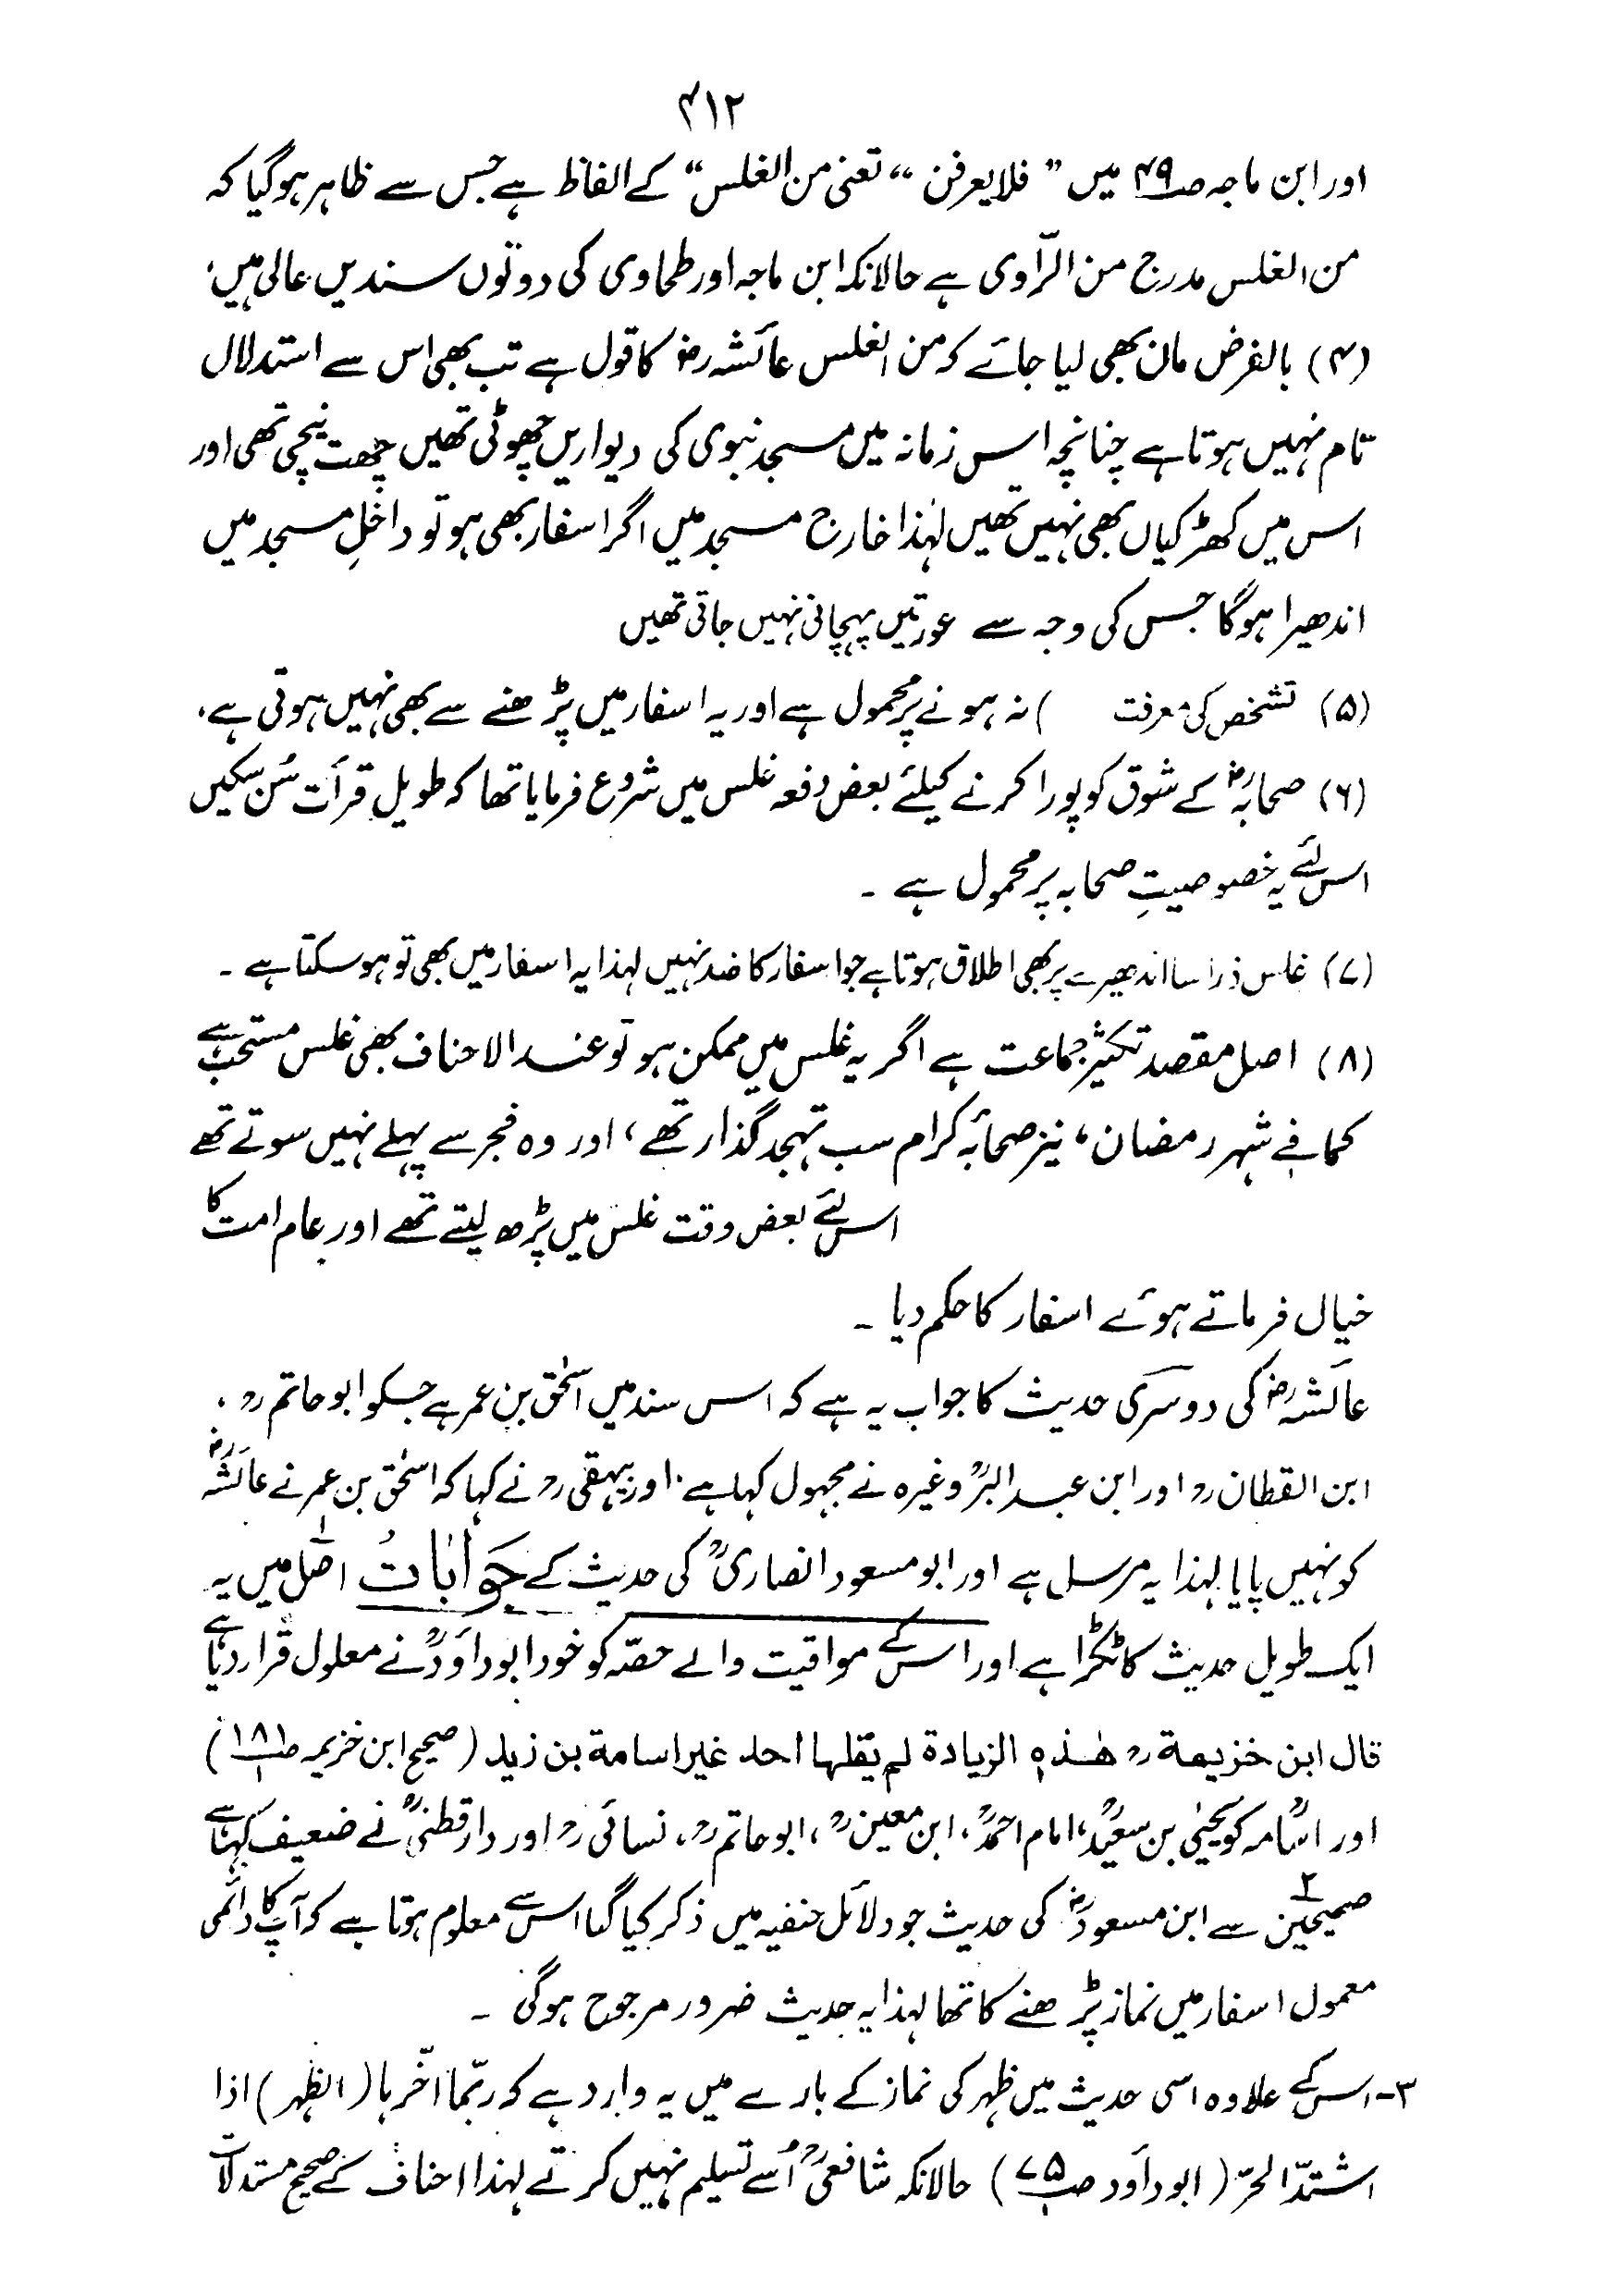 ۴۱۲
اور ابن ماجہ صـ۴۹ میں ” فلایعرفن “ تعنی من الغلس“ کے الفاظ ہے جس سے ظاہر ہوگیا کہ
من الغلس مدرج من الرّاوی ہے حالانکہ ابن ماجہ اور طحاوی کی دونوں سندیں عالی ہیں،
(۴) بالفرض مان بھی لیا جائے کہ من الغلس عائشہ رض کا قول ہے تب بھی اس سے استدلال
تام نہیں ہوتا ہے چنانچہ اس زمانہ میں مسجد نبوی کی دیواریں چھوٹی تھیں چھت نیچی تھی اور
اس میں کھڑکیاں بھی نہیں تھیں لہٰذا خارج مسجد میں اگر اسفار بھی ہو تو داخلِ مسجد میں
اندھیرا ہوگا جس کی وجہ سے عورتیں پہچانی نہیں جاتی تھیں
(۵) تشخص کی معرفت ) نہ ہونے پر محمول ہے اور یہ اسفار میں پڑھنے سے بھی نہیں ہوتی ہے،
(۶) صحابہؓ کے شوق کو پورا کرنے کیلئے بعض دفعہ غلس میں شروع فرمایا تھا کہ طویل قرأت سُن سکیں
اسلئے یہ خصوصیتِ صحابہ پر محمول ہے ۔
(۷) غلس ذرا سا اندھیرے پر بھی اطلاق ہوتا ہے جو اسفار کا ضد نہیں لہذا یہ اسفار میں بھی تو ہو سکتا ہے ۔
(۸) اصل مقصد تکثیر جماعت ہے اگر یہ غلس میں ممکن ہو تو عند الاحناف بھی غلس مستحب ہے
کما فے شہر رمضان، نیز صحابۂ کرام سب تہجد گذار تھے، اور وہ فجر سے پہلے نہیں سوتے تھے
اسلئے بعض وقت غلس میں پڑھ لیتے تھے اور عام امت کا
خیال فرماتے ہوئے اسفار کا حکم دیا ۔
عائشہ رض کی دوسری حدیث کا جواب یہ ہے کہ اس سند میں اسحٰق بن عمر ہے جسکو ابوحاتم رح،
ابن القطان رح اور ابن عبد البرؒ وغیرہ نے مجہول کہا ہے، اور بیہقی رح نے کہا کہ اسحٰق بن عمر نے عائشہؓ
کو نہیں پایا لہذا یہ مرسل ہے اور ابومسعود انصاریؓ کی حدیث کے جَوَابَاتُ ۱ اصل میں یہ
ایک طویل حدیث کا ٹکڑا ہے اور اس کے مواقیت والے حصّہ کو خود ابوداؤدؒ نے معلول قرار دیا ہے
قال ابن خزیمة رح ھٰذہ الزیادة لم یقلھا احد غیر اسامة بن زید (صحیح ابن خزیمہ صـ۱۸۱)
اور اسامہ کو یحییٰ بن سعیدؒ، امام احمدؒ، ابن معینؒ، ابوحاتم رح، نسائی رح اور دارقطنیؒ نے ضعیف کہا ہے
۲ صحیحین سے ابن مسعودؓ کی حدیث جو دلائل حنفیہ میں ذکر کیا گیا اس سے معلوم ہوتا ہے کہ آپ کا دائمی
معمول اسفار میں نماز پڑھنے کا تھا لہذا یہ حدیث ضرور مرجوح ہوگی ۔
۳- اس کے علاوہ اسی حدیث میں ظہر کی نماز کے بارے میں یہ وارد ہے کہ ربّما اخّرہا (الظہر) اذا
اشتدّ الحرّ (ابوداؤد صـ۷۵) حالانکہ شافعیؒ اُسے تسلیم نہیں کرتے لہٰذا احناف کے صحیح مستدلات